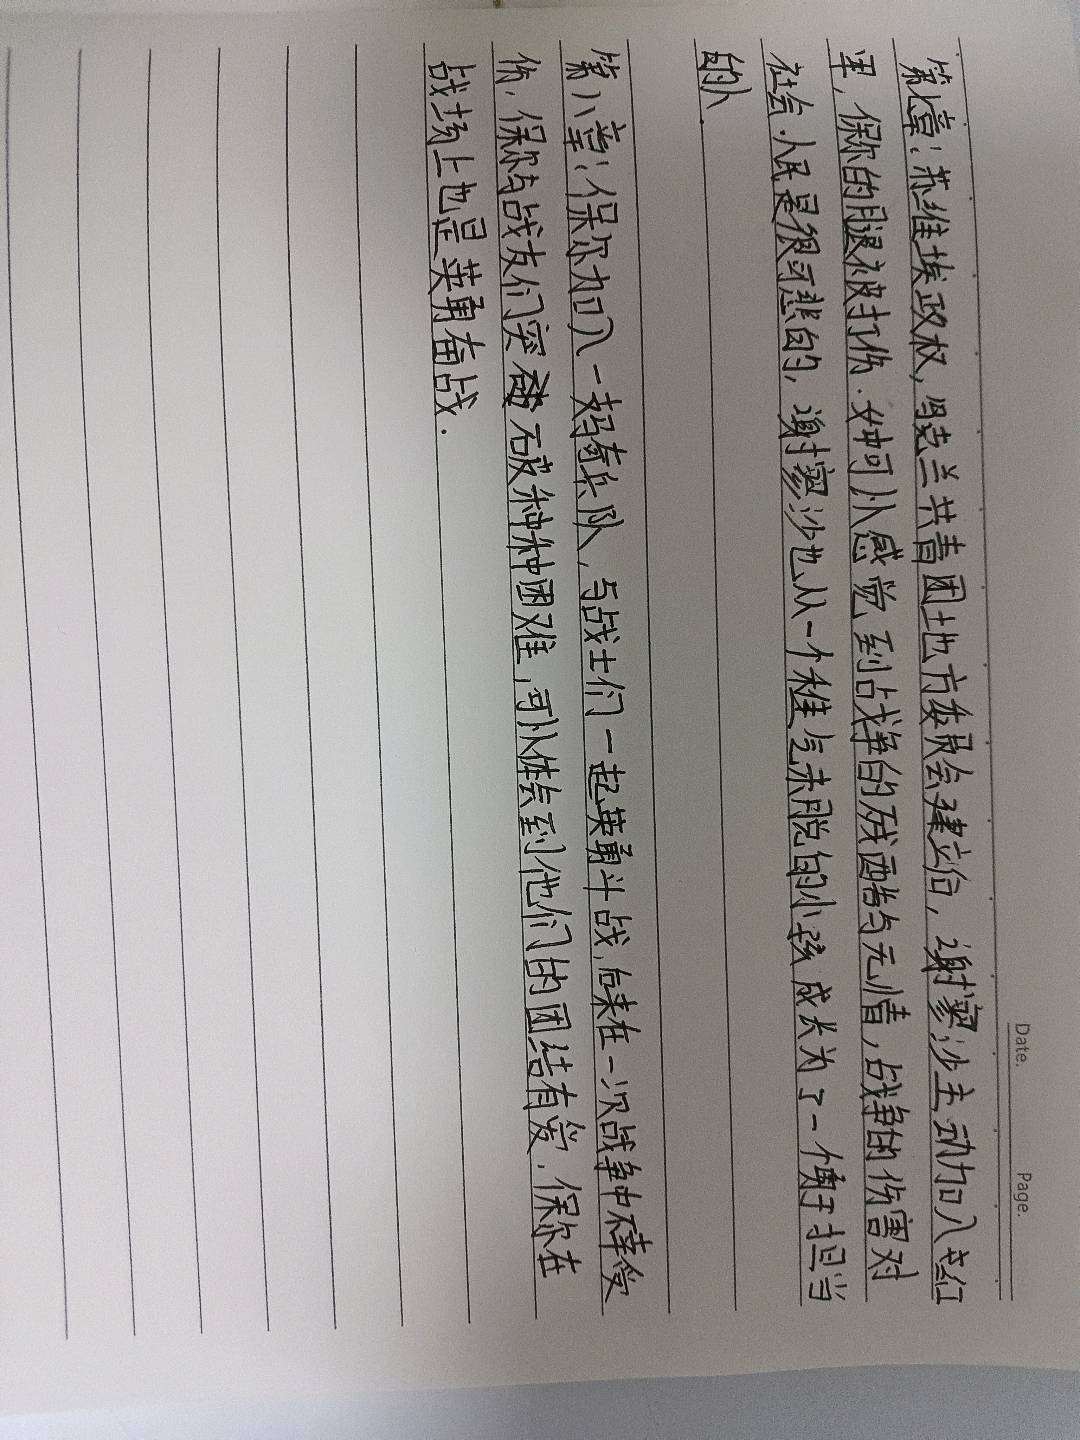 Date. Page.
第七章：苏维埃政权，乌克兰共青团地方委员会建立后，谢廖沙主动加入红
军，保尔的腿被打伤.从中可以感觉到战争的残酷与无情，战争的伤害对
社会.人民是很可悲的，谢廖沙也从一个稚气未脱的小孩成长为了一个勇于担当
的人.
第八章：保尔加入一支骑兵队，与战士们一起英勇斗战，后来在一次战争中不幸受
伤，保尔与战友们突破种种困难，可以体会到他们的团结有爱.保尔在
战场上也是英勇奋战.